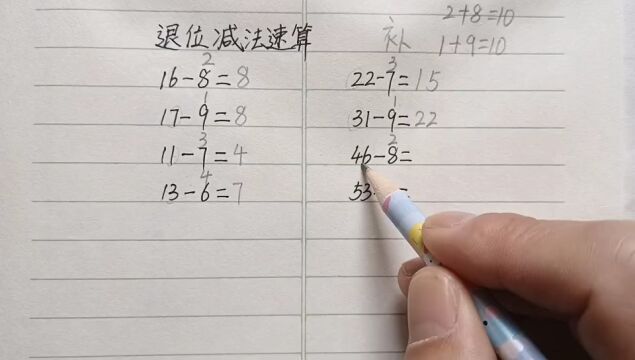 退位减法速算
2+8=10
补 1+9=10
2
16-8=8
1
17-9=8
3
11-7=4
4
13-6=7
3
22-7=15
1
31-9=22
2
46-8=
53- =